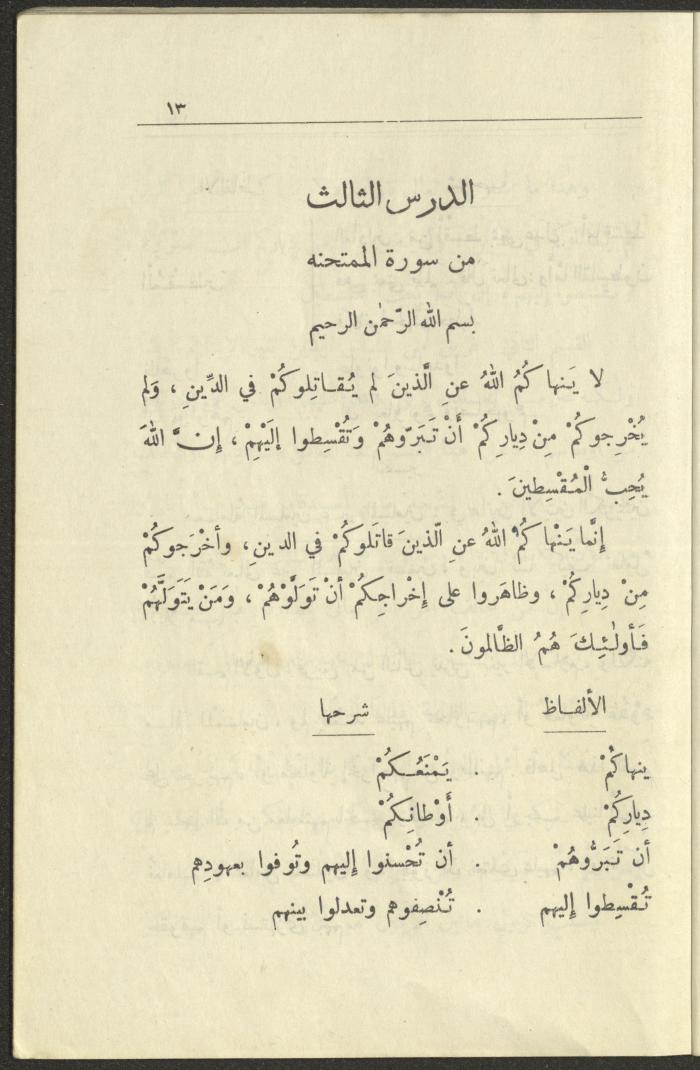 ١٣
الدرس الثالث
من سورة الممتحنه
بسم الله الرّحمٰن الرحيم
لا يَنهاكُمُ اللهُ عنِ الَّذينَ لم يُقاتِلوكُمْ في الدِّينِ ، وَلم
يُخْرِجوكُمْ مِنْ دِيارِكُمْ أَنْ تَبَرّوهُمْ وَتُقْسِطوا إلَيْهِمْ ، إنَّ اللهَ
يُحِبُّ الْمُقْسِطينَ .
إِنَّما يَنْهاكُمُ اللهُ عنِ الّذينَ قاتَلوكُمْ في الدينِ ، وأخْرَجوكُمْ
مِنْ دِيارِكُمْ ، وظاهَروا على إخْراجِكُمْ أنْ تَوَلَّوْهُمْ ، وَمَنْ يَتَوَلَّهُمْ
فَأولٰئِكَ هُمُ الظَّالمونَ .
الألفاظ شرحها
ينهاكُمْ . يَمْنَعُكُمْ
دِيارِكُمْ أَوْطانِكُمْ
أن تَبَرُّوهُمْ . أن تُحْسنوا إليهم وتُوفوا بعهودِهم
تُقْسِطوا إليهم . تُنْصِفوهم وتعدلوا بينهم